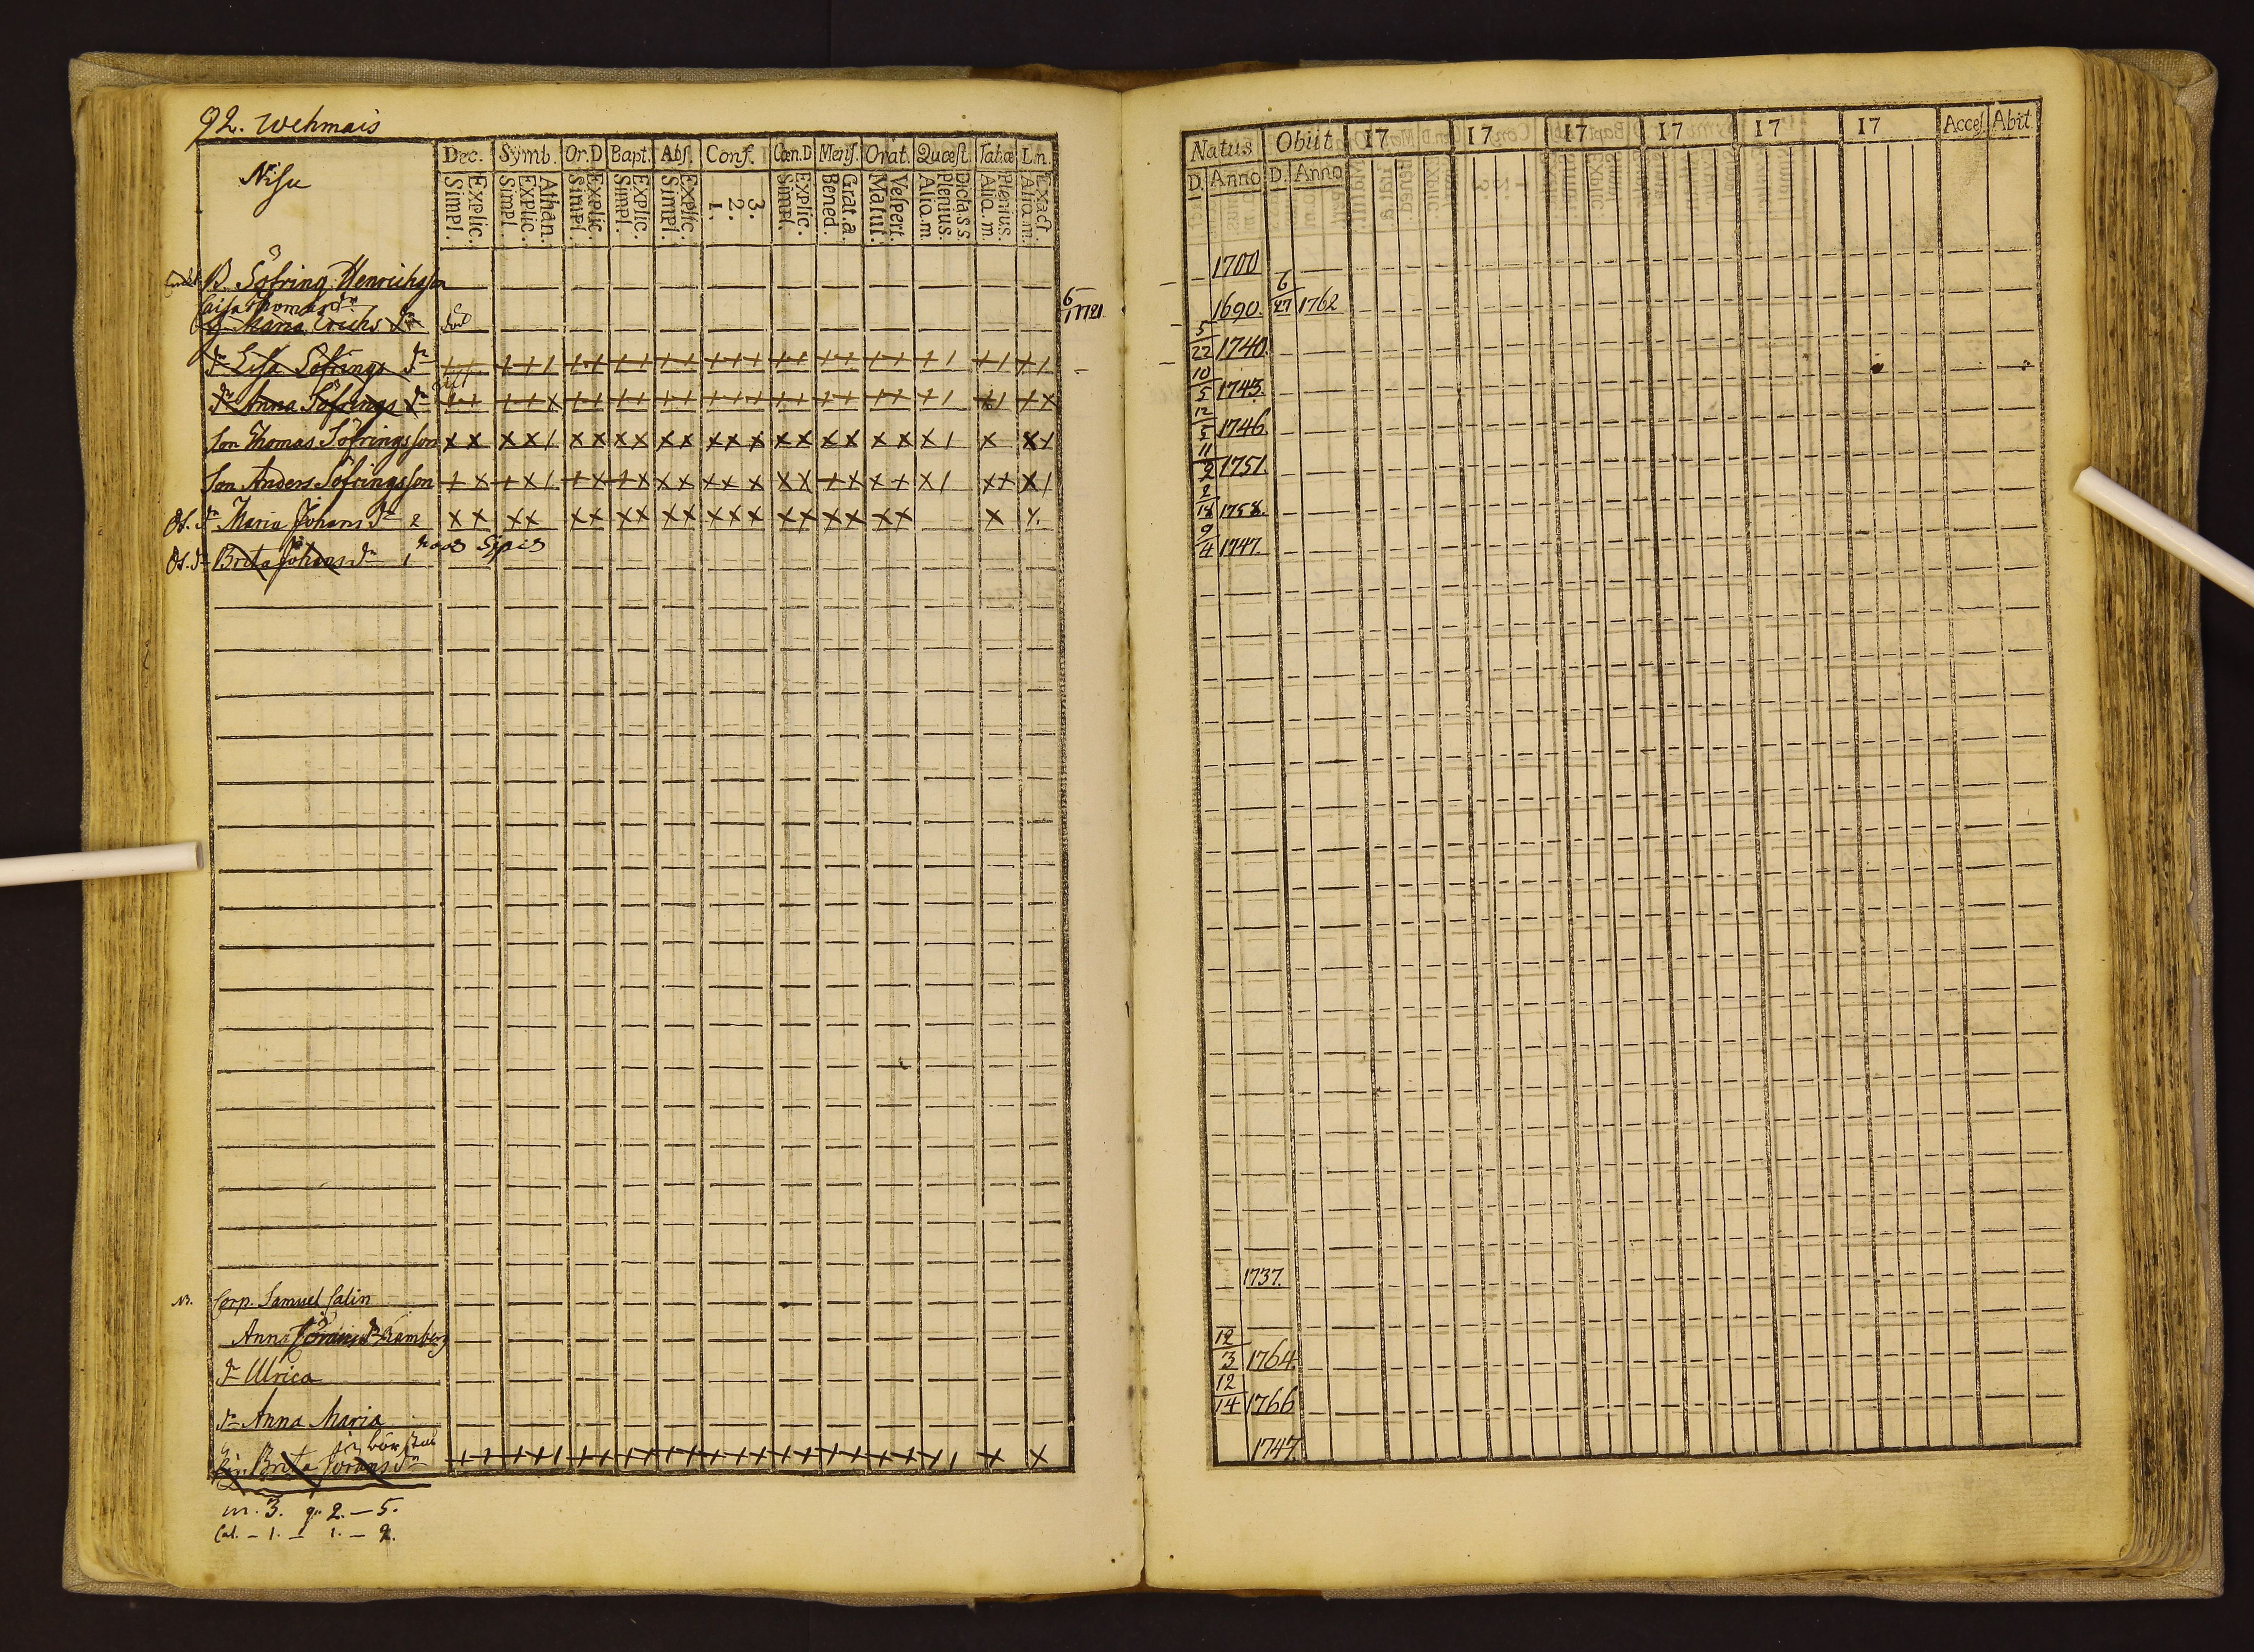 92. Wehmais
Nisu
Dec. Symb. Or.D Bapt. Abs. Conf. Cœn.D Mens. Orat. Quæst. Tab.æ L.n.
Simpl. Explic. Simpl. Explic. Athan. Simpl. Explic. Simpl. Explic. Simpl. Explic. 1. 2. 3. Simpl. Explic. Bened. Grat.a. Matut. Vespert. Alio.m. Plenius. Dicta.s.s. Alio.m. Plenius. Alio.m. Exact.
B. Söfring Henrichsson
Caisa Thomas dr
Maria Erichs dr
dr Lisa Söfrings dr
dr Anna Söfrings dr
Son Thomas Söfringsson
Son Anders Söfringsson
Os. dr Maria Johans dr 2
Os. dr Brita Johans dr 1
NB. Corp. Samuel Salin
Anna Ramberg
dr Ulrica
dr Anna Maria
Brita Johans dr
m. 3. q. 2. — 5.
Cal. — 1. — 1. — 2.
6 1 1721
Natus Obiit 17 17 17 17 17 17 Acces. Abit.
D. Anno D. Anno
1700
1690 6/27 1762
5/22 1740
10/5 1743
12/5 1746
11/2 1751
2/18 1758
9/4 1747
1737.
12/3 1764
12/14 1766
1747